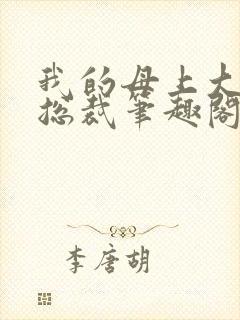 我的母上大
总裁笔趣阁
李唐胡